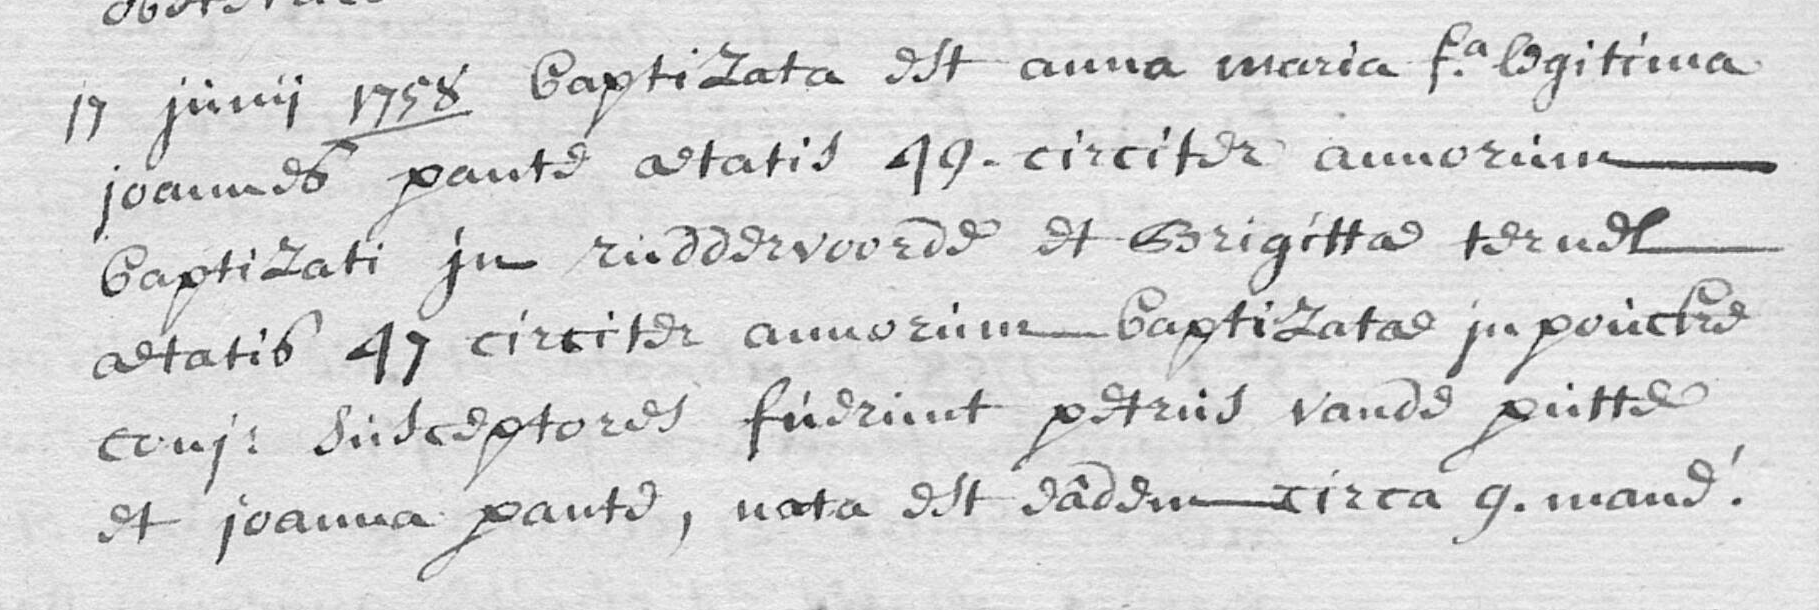 17 junij 1758 baptizata est anna maria f.a legitima
joannes pante ætatis 49. circiter annorum
baptizati in ruddervoorde et Brigittæ ternel
ætatis 47 circiter annorum baptizatæ in pouckre
conj: susceptores fuerunt petrus vande putte
et joanna pante, nata est eâdem circa 9. mane.